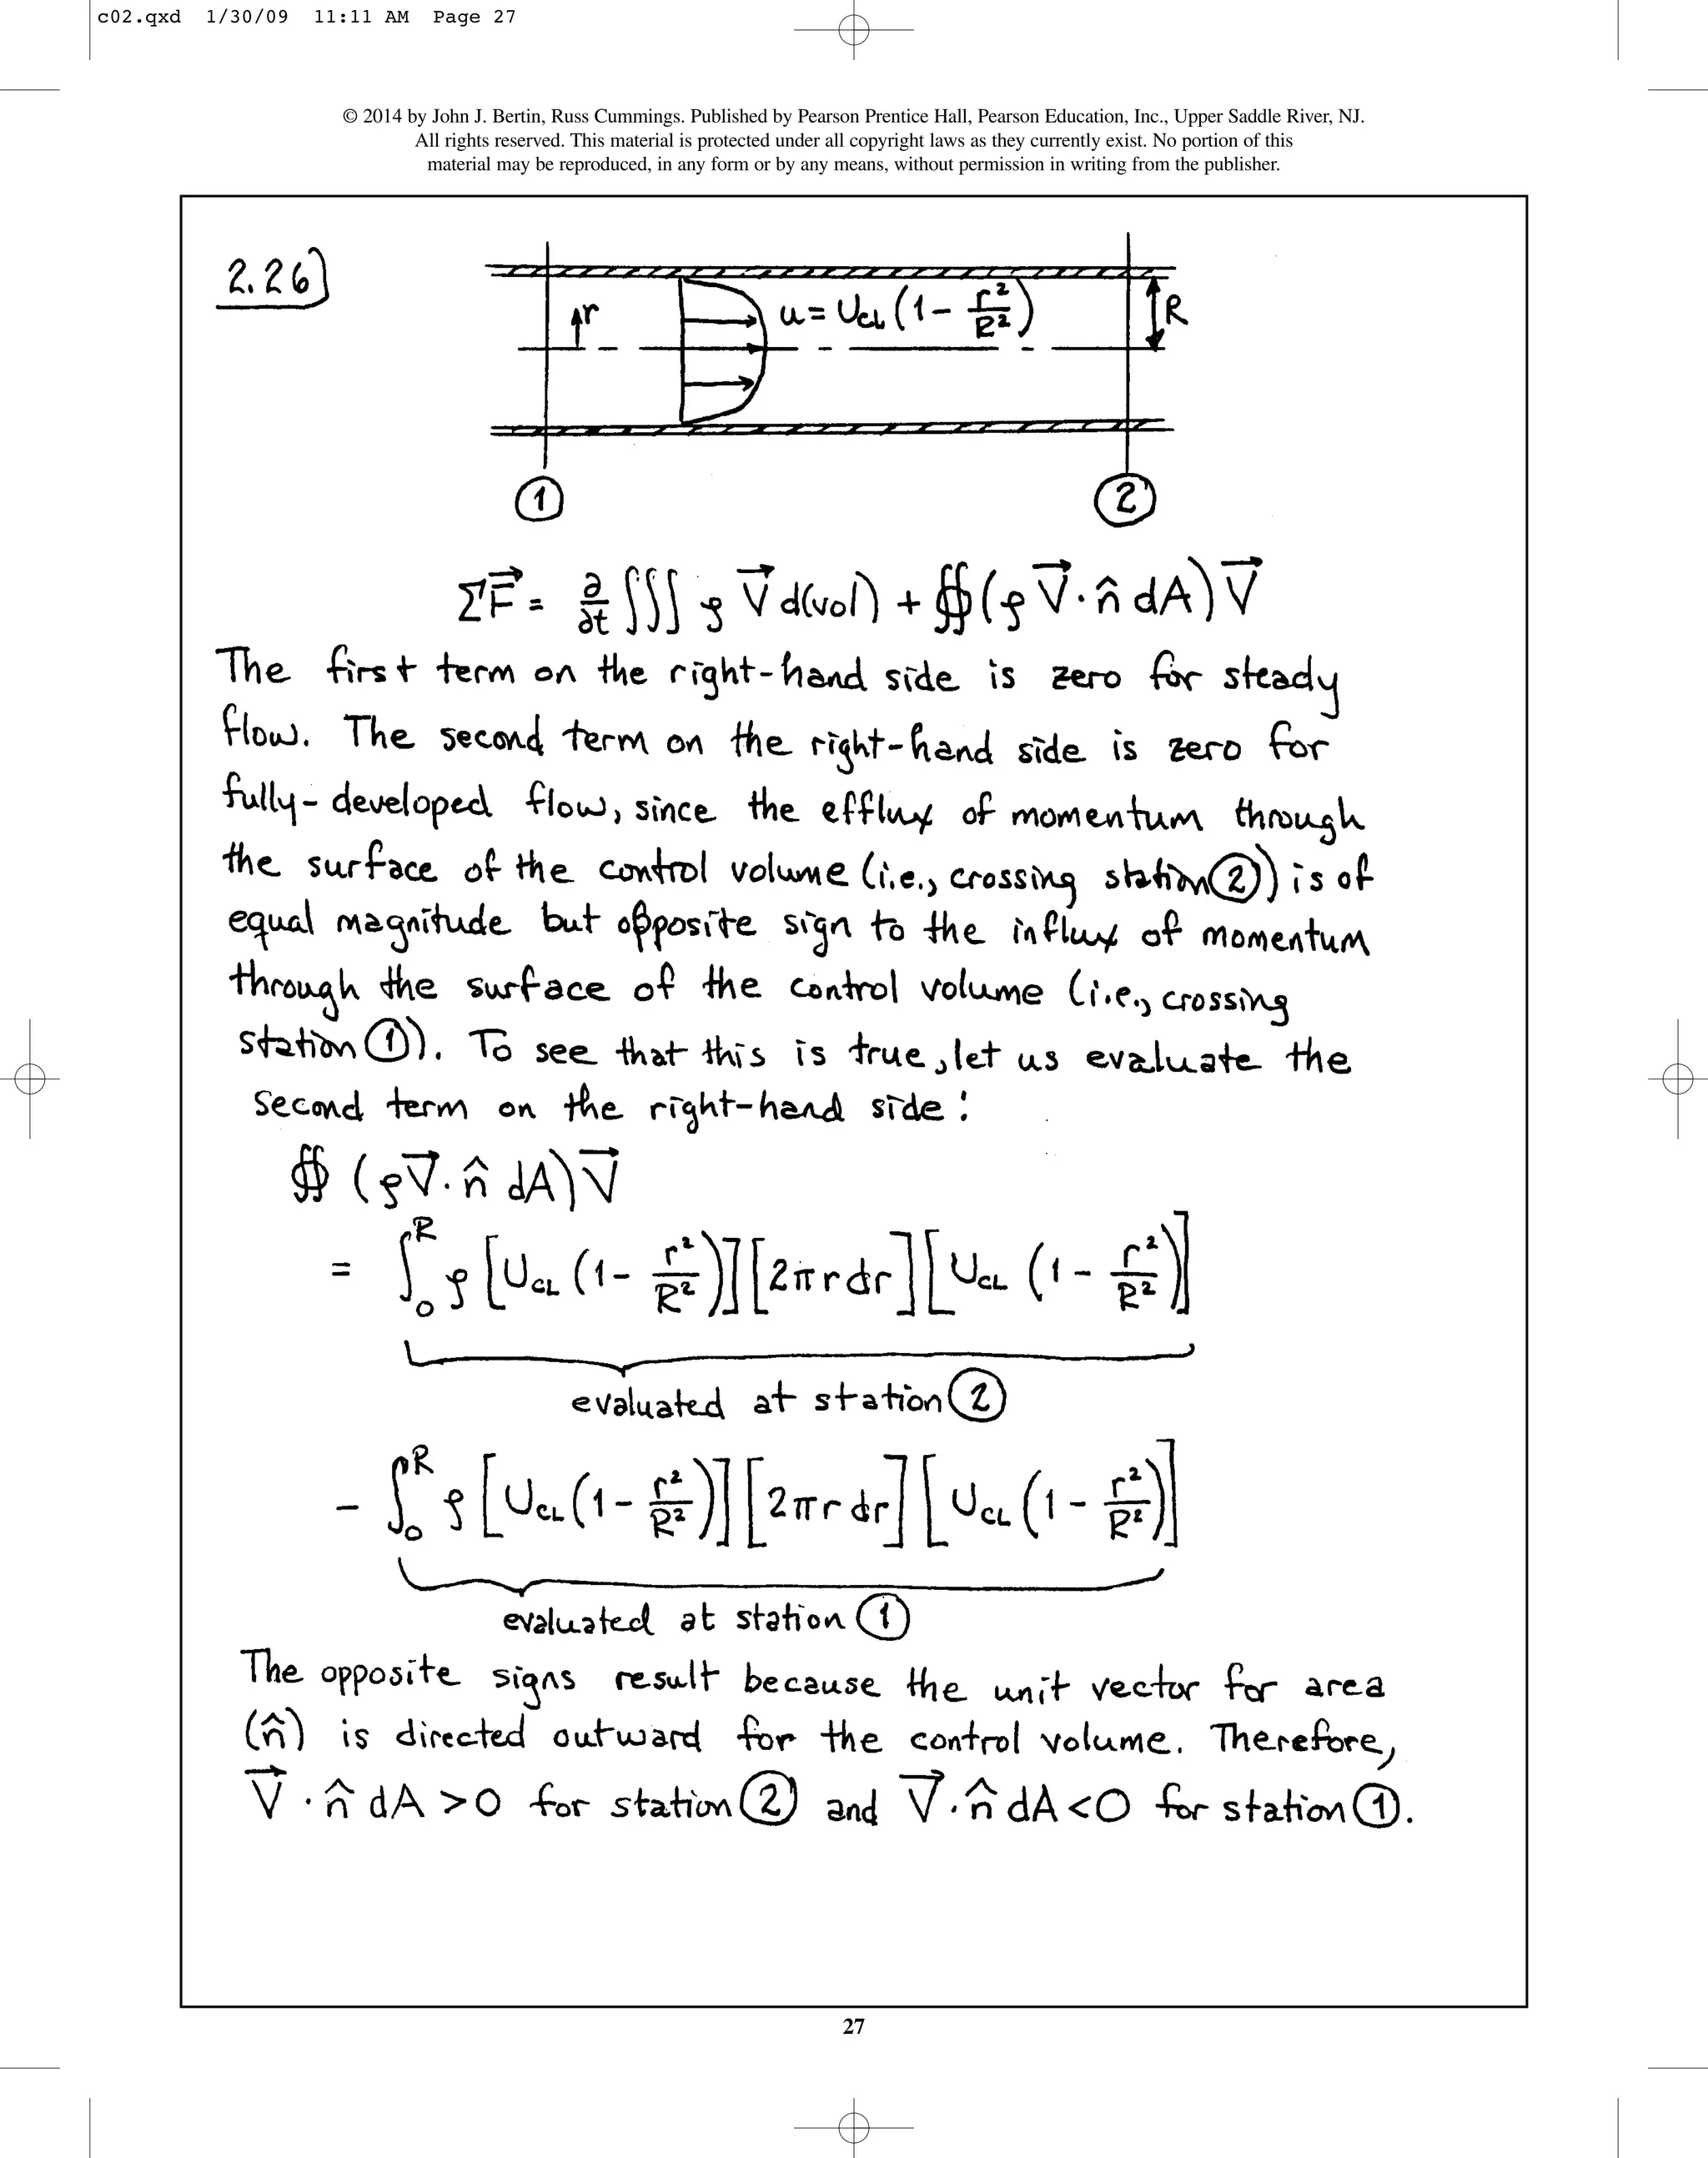 c02.qxd 1/30/09 11:11 AM Page 27
© 2014 by John J. Bertin, Russ Cummings. Published by Pearson Prentice Hall, Pearson Education, Inc., Upper Saddle River, NJ.
All rights reserved. This material is protected under all copyright laws as they currently exist. No portion of this
material may be reproduced, in any form or by any means, without permission in writing from the publisher.
2.26)
r
u = U_CL (1 - r²/R²)
R
① ②
ΣF⃗ = ∂/∂t ∭ ρ V⃗ d(vol) + ∯(ρ V⃗ · n̂ dA) V⃗
The first term on the right-hand side is zero for steady
flow. The second term on the right-hand side is zero for
fully-developed flow, since the efflux of momentum through
the surface of the control volume (i.e., crossing station ②) is of
equal magnitude but opposite sign to the influx of momentum
through the surface of the control volume (i.e., crossing
station ①). To see that this is true, let us evaluate the
second term on the right-hand side:
∯ (ρV⃗ · n̂ dA) V⃗
= ∫₀ᴿ ρ [U_CL (1 - r²/R²)] [2πr dr] [U_CL (1 - r²/R²)]
evaluated at station ②
- ∫₀ᴿ ρ [U_CL (1 - r²/R²)] [2πr dr] [U_CL (1 - r²/R²)]
evaluated at station ①
The opposite signs result because the unit vector for area
(n̂) is directed outward for the control volume. Therefore,
V⃗ · n̂ dA > 0 for station ② and V⃗ · n̂ dA < 0 for station ①.
27